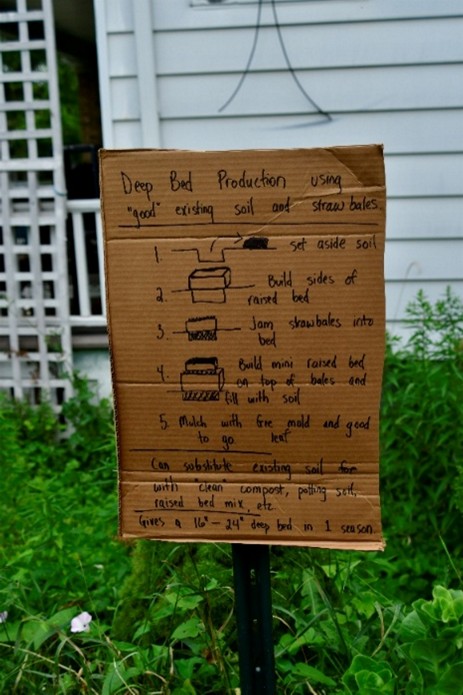 Deep Bed Production using
"good" existing soil and straw bales
1. set aside soil
2. Build sides of
raised bed
3. Jam strawbales into
bed
4. Build mini raised bed
on top of bales and
fill with soil
5. Mulch with mold and good
to go leaf
Can substitute existing soil for
with "clean" compost, potting soil,
raised bed mix, etc
Gives a 16" - 24" deep bed in 1 season